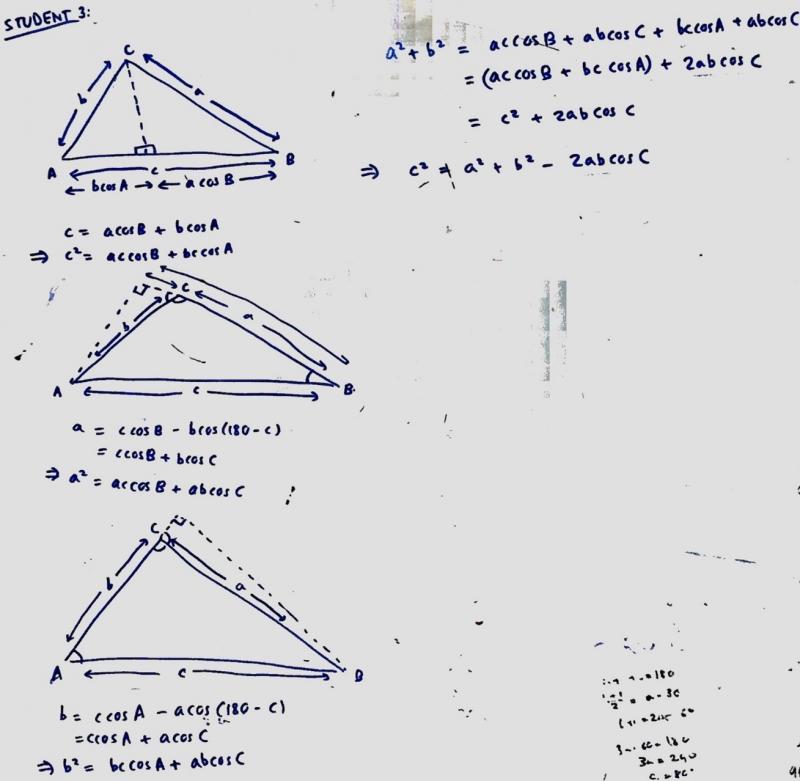 STUDENT 3:
C
b
a
A
c
B
bcosA
acosB
c = acosB + bcosA
⇒ c² = accosB + bccosA
C
b
a
A
c
B
a = ccosB - bcos(180-c)
= ccosB + bcosC
⇒ a² = accosB + abcosC
C
b
a
A
c
B
b = ccosA - acos(180-c)
= ccosA + acosC
⇒ b² = bccosA + abcosC
a² + b² = accosB + abcosC + bccosA + abcosC
= (accosB + bc cosA) + 2abcosC
= c² + 2abcosC
⇒ c² = a² + b² - 2abcosC